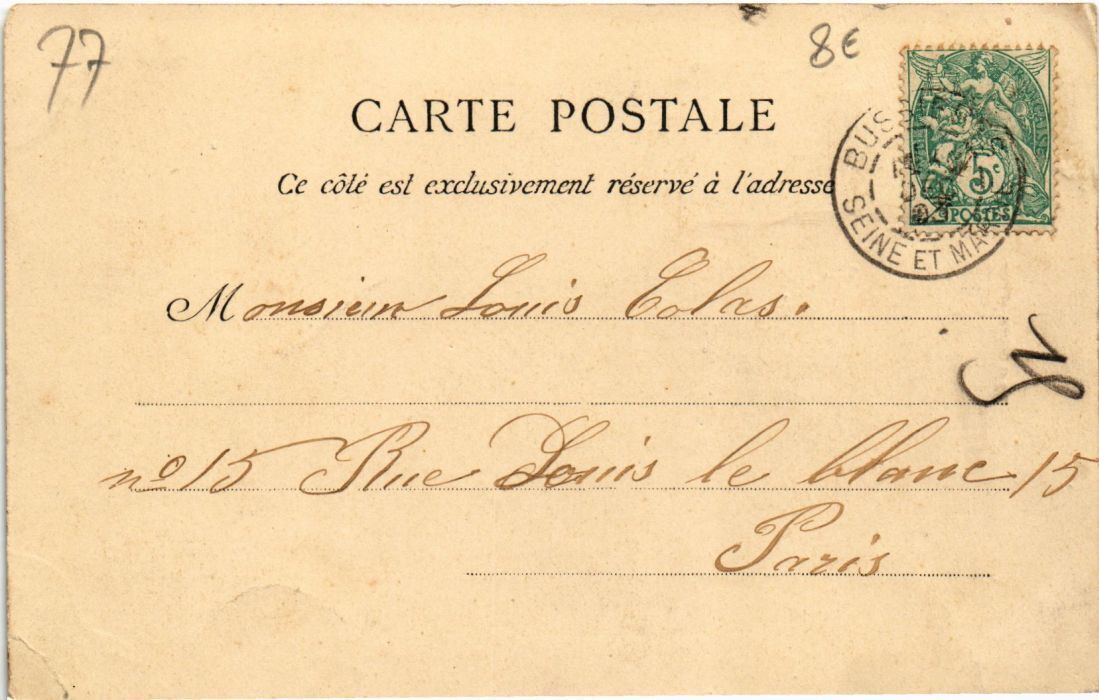 77
8€
CARTE POSTALE
Ce côté est exclusivement réservé à l'adresse
5c
POSTES
SEINE ET MA
Monsieur Louis Colas.
no 15 Rue Louis le blanc 15
Paris